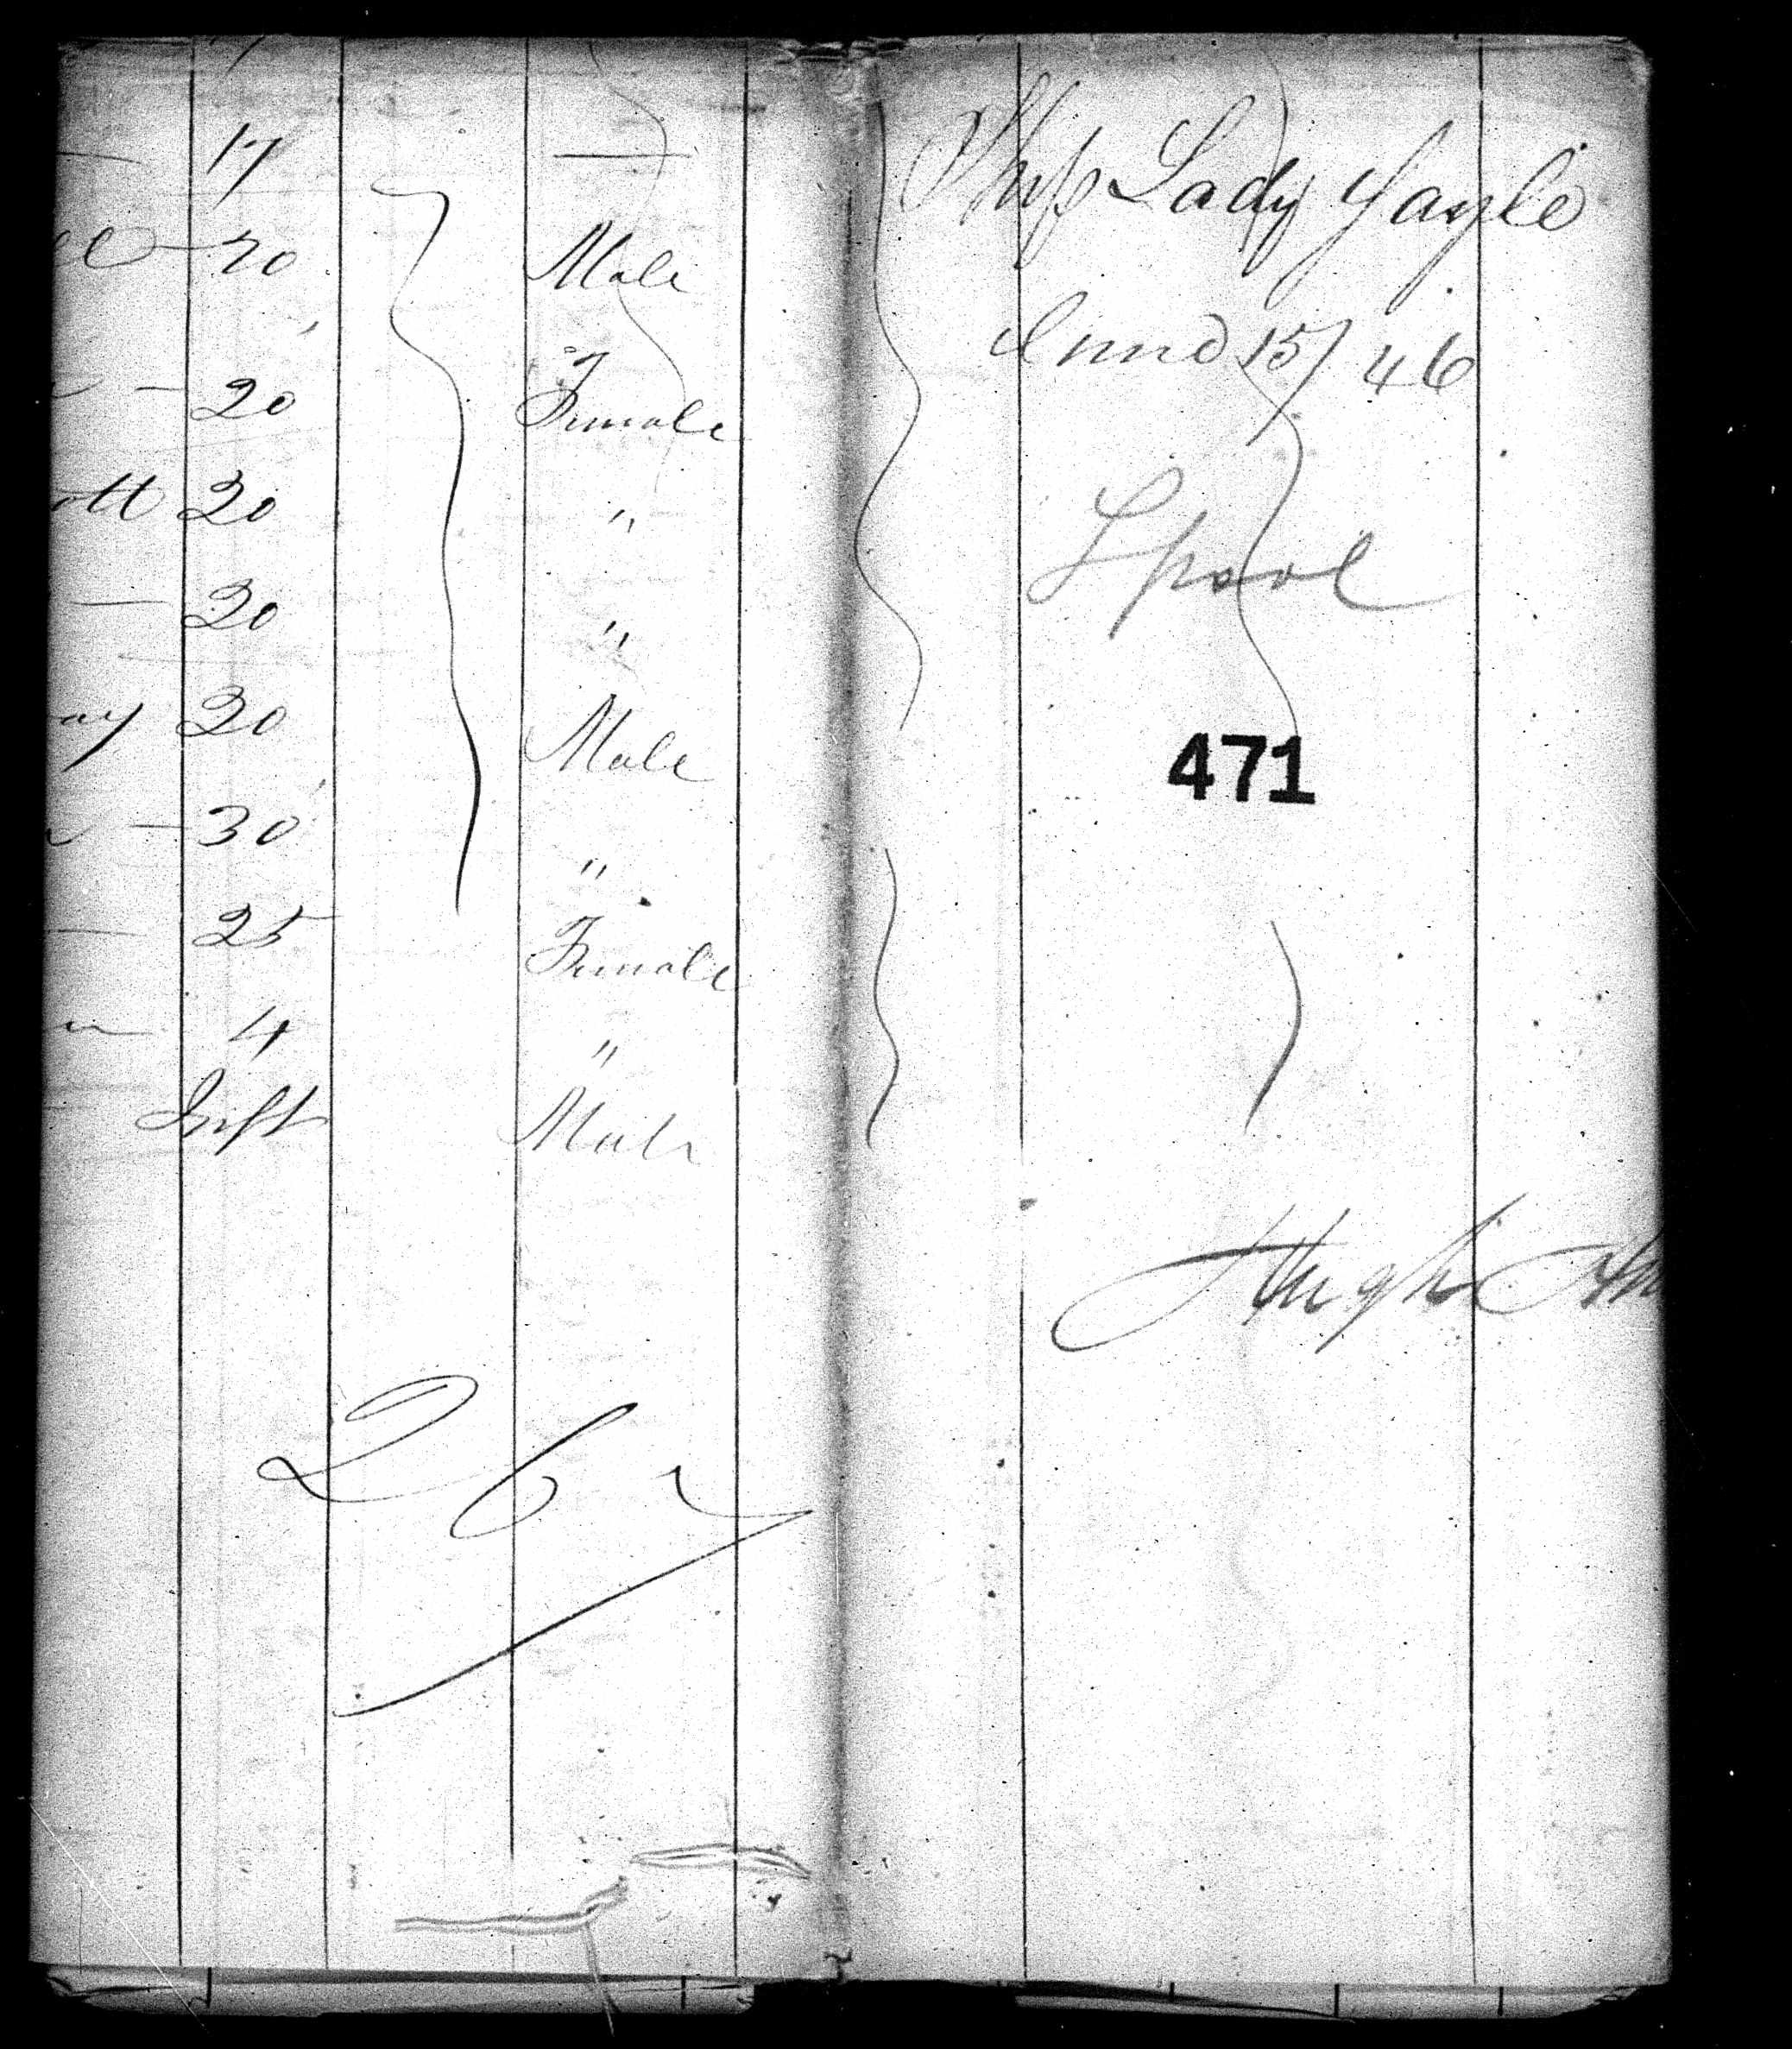 17 —
ll — 20 Male
— 20 Female
ott 20 "
— 20 "
ay 20 Male
— 30 "
— 25 Female
4 "
Inft Male
262
Ship Lady Gayle
June 15/46
Lpool
471
Hugh